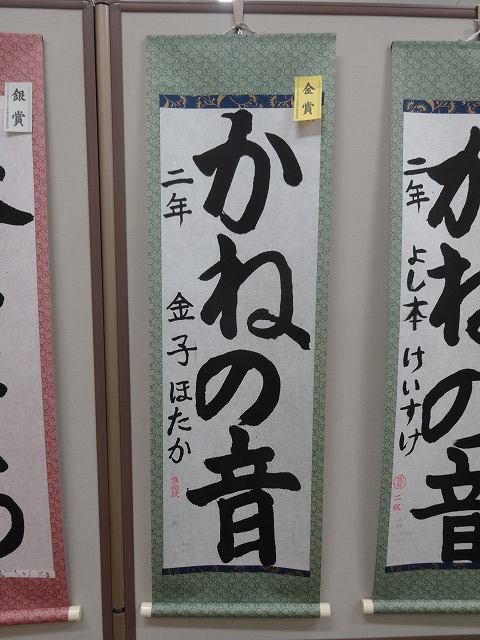 金賞
かねの音
二年
金子ほたか
準初段
かねの音
二年
よし本けいすけ
二級
銀賞